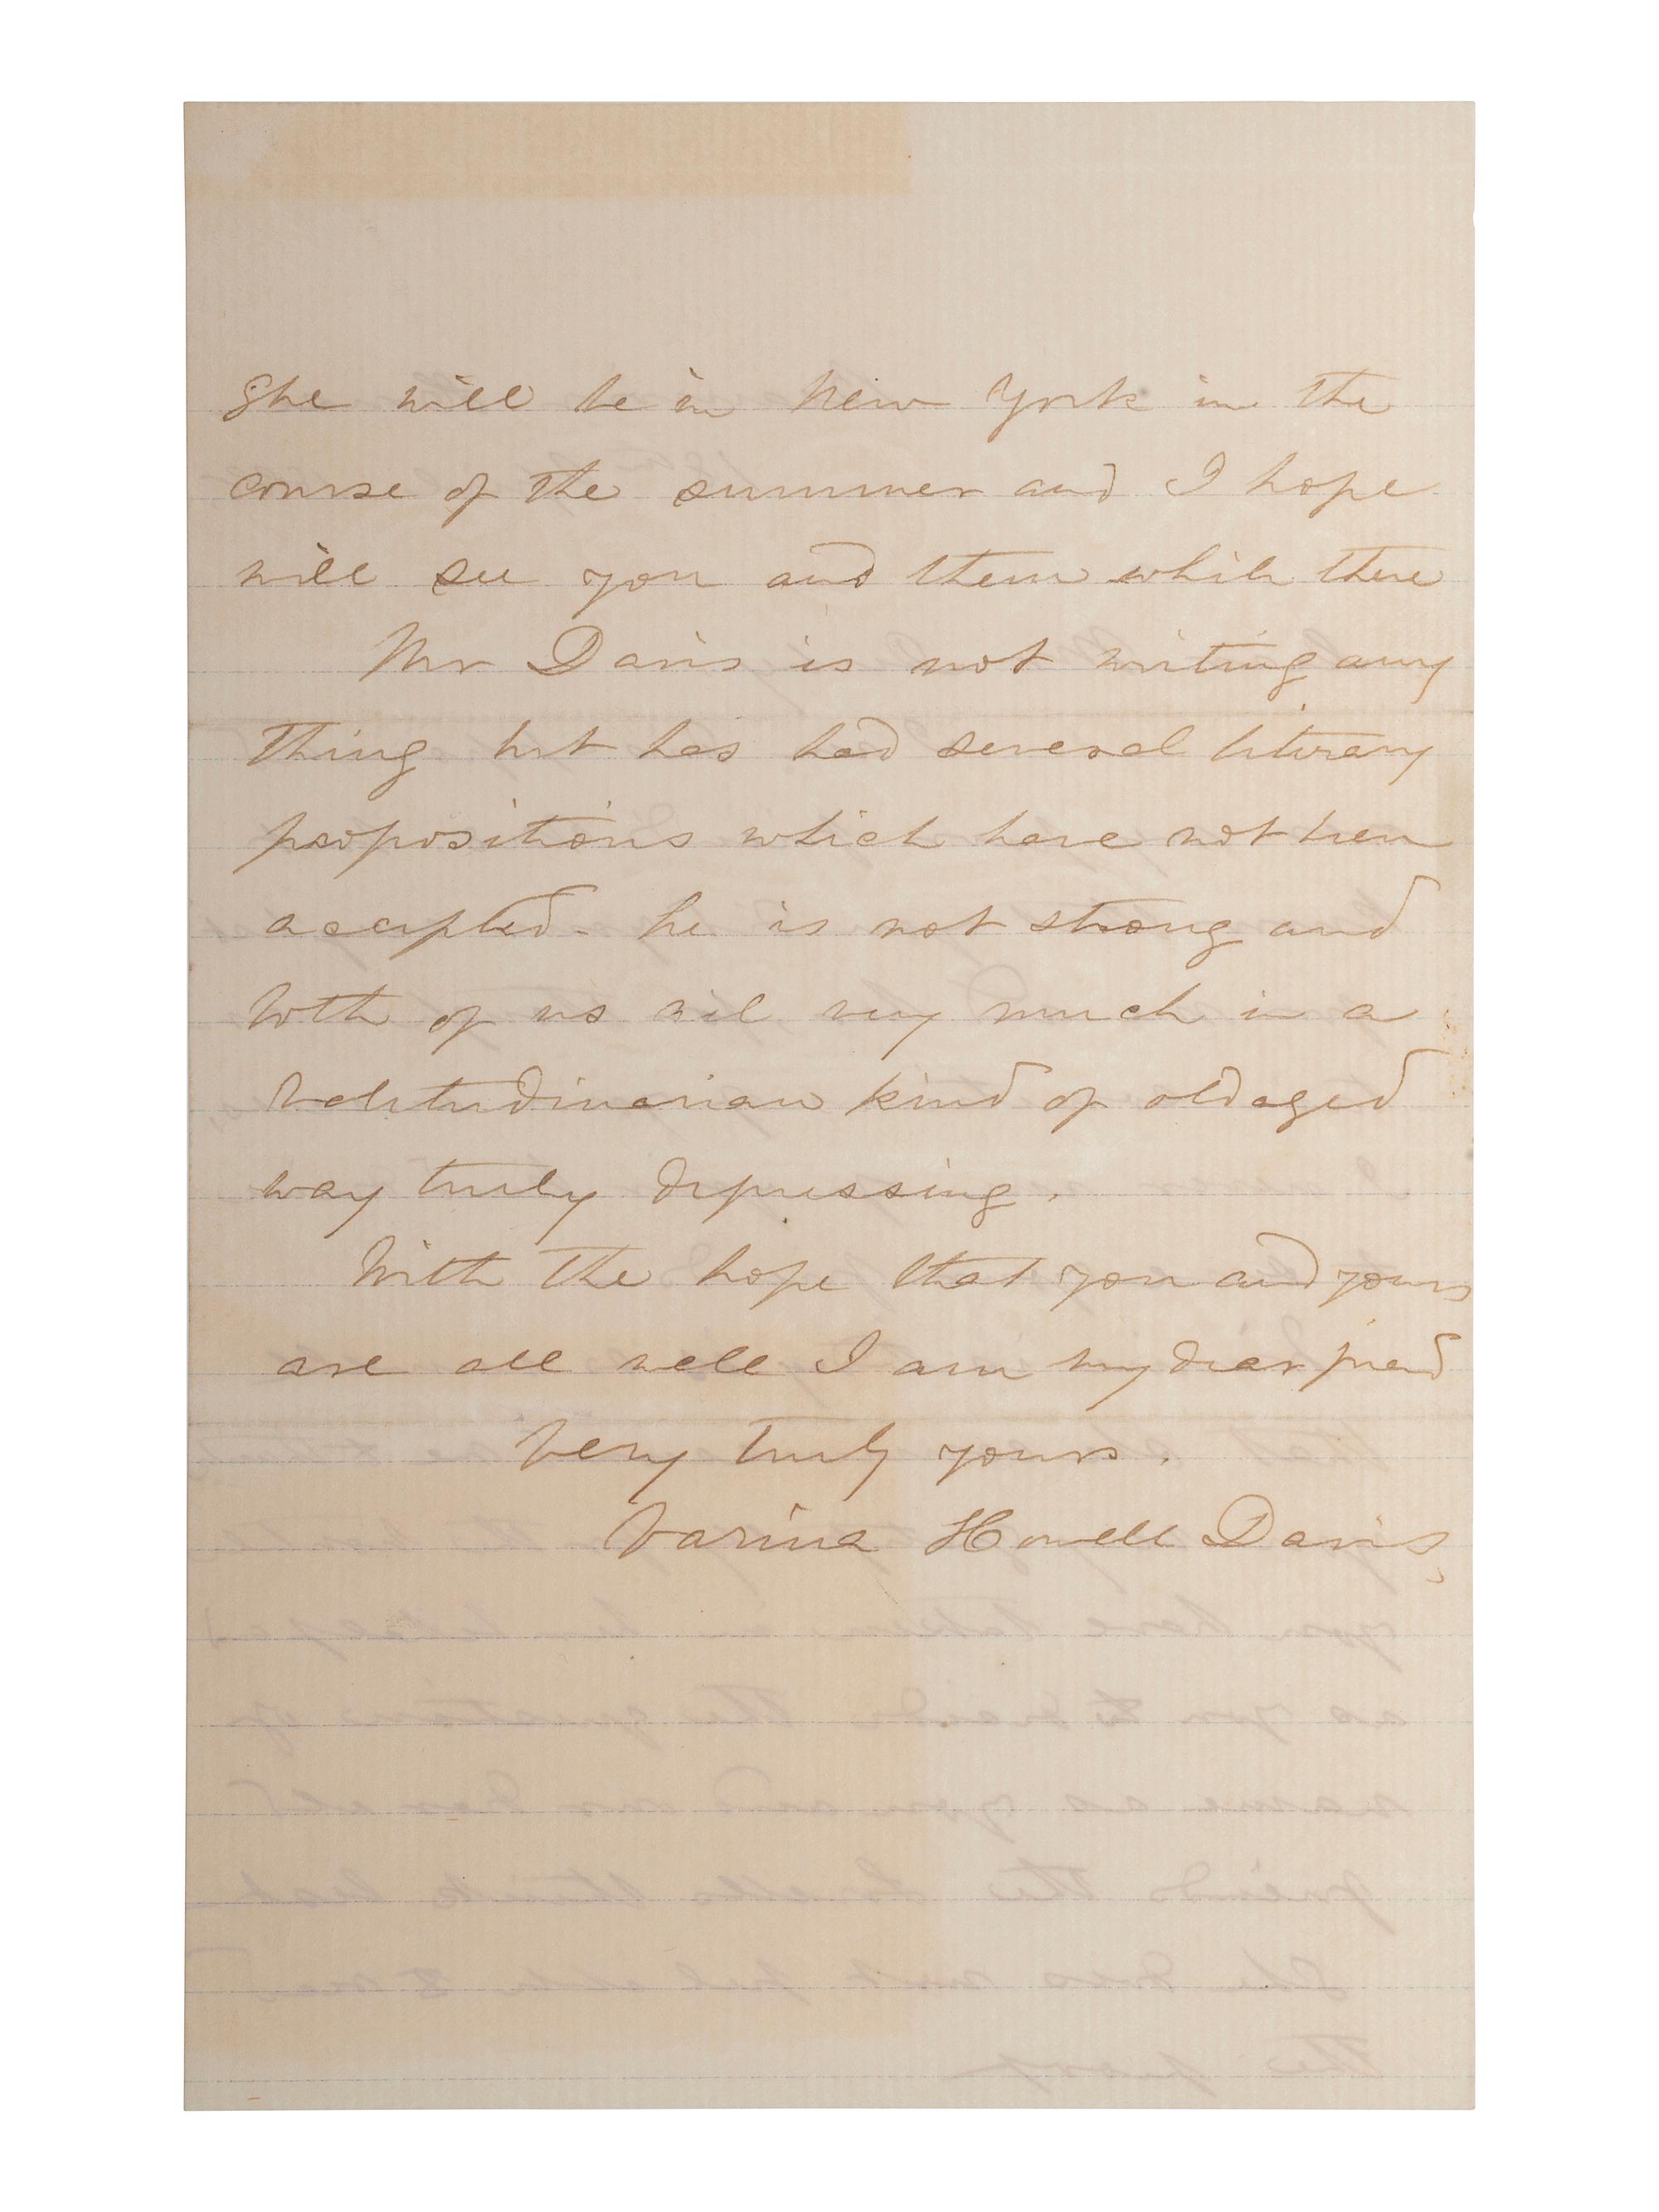 She will be in New York in the
course of the summer and I hope
will see you and them while there
Mr Davis is not writing any
thing but has had several literary
propositions which have not been
accepted - he is not strong and
both of us ail very much in a
valitudinarian kind of old aged
way truly depressing.
With the hope that you and yours
are all well I am my dear friend
Very truly yours.
Varina Howell Davis